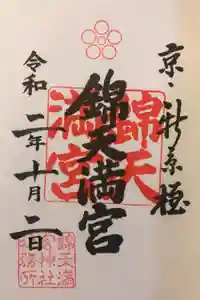 京・新京極
錦天満宮
令和二年十月二日
錦天
満宮
錦天満
宮神社
社務所